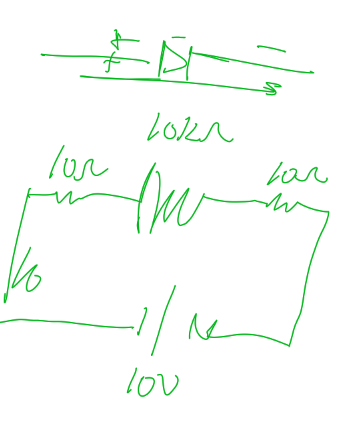 + -
+
10kΩ
10Ω 10Ω
10V